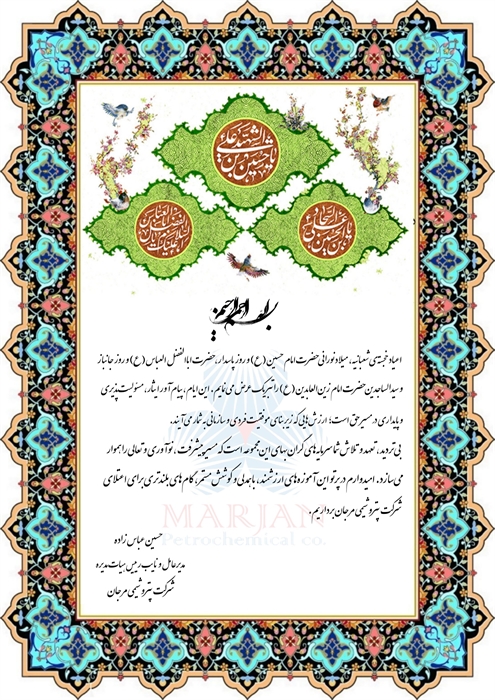 یا حسین بن علی الشهید
بسم الله الرحمن الرحیم
اعیاد خجسته‌ی شعبانیه، میلاد نورانی حضرت امام حسین (ع) و روز پاسدار، حضرت اباالفضل العباس (ع) و روز جانباز
و سیدالساجدین حضرت امام زین العابدین (ع) را تبریک عرض می نمایم. این ایام، پیام آور ایثار، مسئولیت‌پذیری
و پایداری در مسیر حق است؛ ارزش هایی که زیربنای موفقیت فردی و سازمانی به شمار می آیند.
بی تردید، تعهد و تلاش شما سرمایه های گران بهای این مجموعه است که مسیر پیشرفت، نوآوری و تعالی را هموار
می سازد. امیدوارم در پرتو این آموزه های ارزشمند، با همدلی و کوشش مستمر، گام های بلندتری برای اعتلای
شرکت پتروشیمی مرجان برداریم.
MARJAN
Petrochemical co.
حسین عباس زاده
مدیرعامل و نایب رییس هیات مدیره
شرکت پتروشیمی مرجان